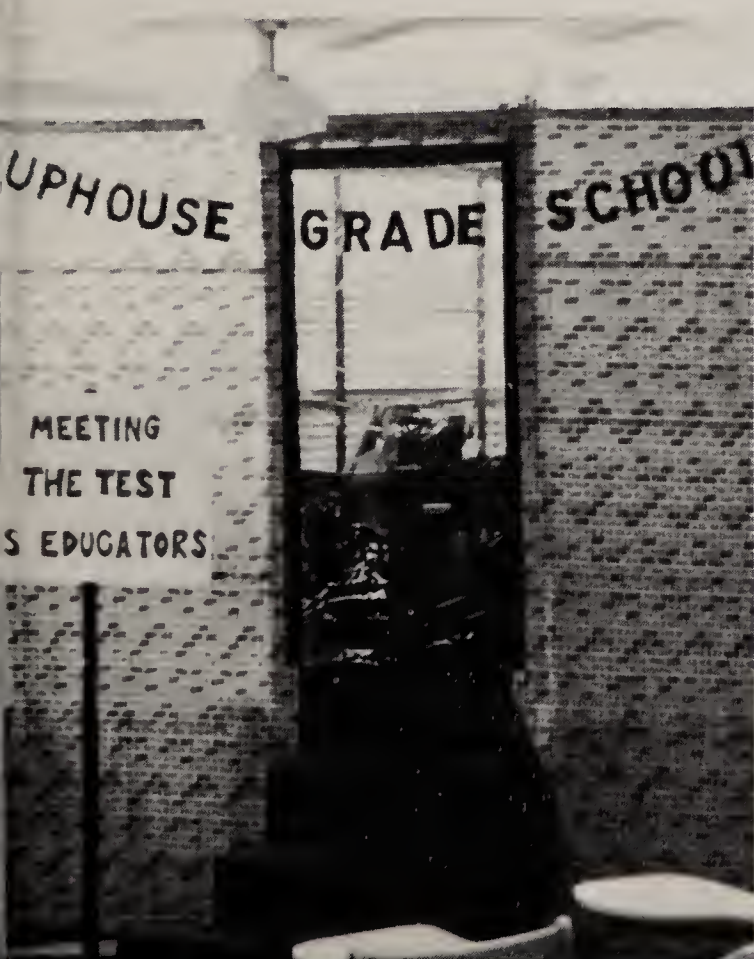 UPHOUSE GRADE SCHOOL
MEETING
THE TEST
S EDUCATORS